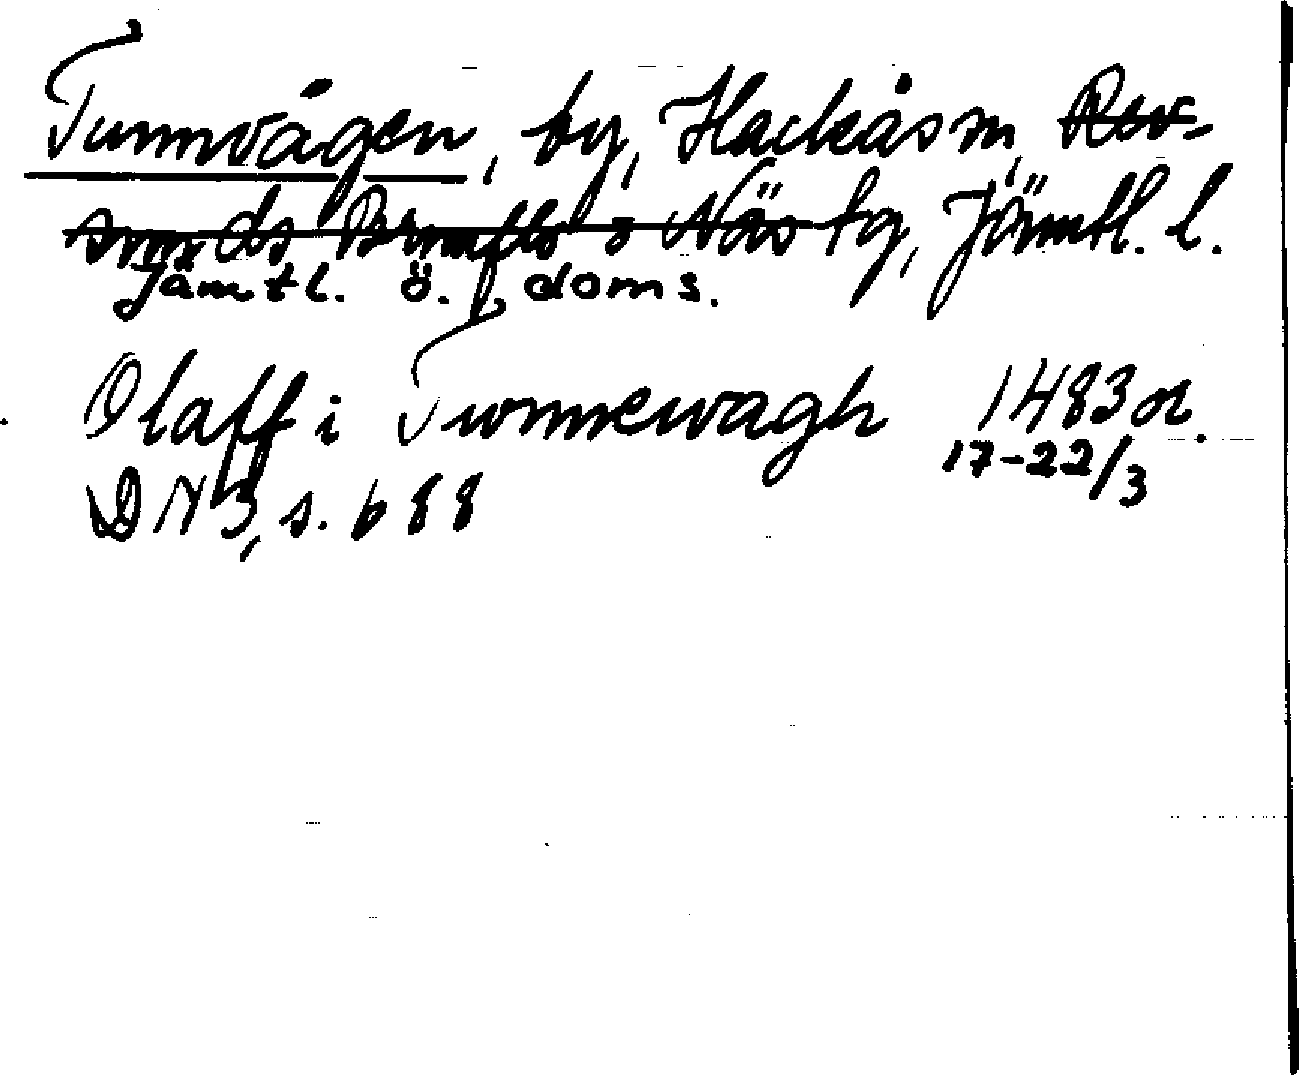 Tunvågen, by, Hackås sn, Rev-
sunds Brunflo o Näs tg, Jämtl. l.
Jämtl. ö. doms.
Olaff i Twnnewagh 1483 or.
17-22/3
DN 3, s. 688